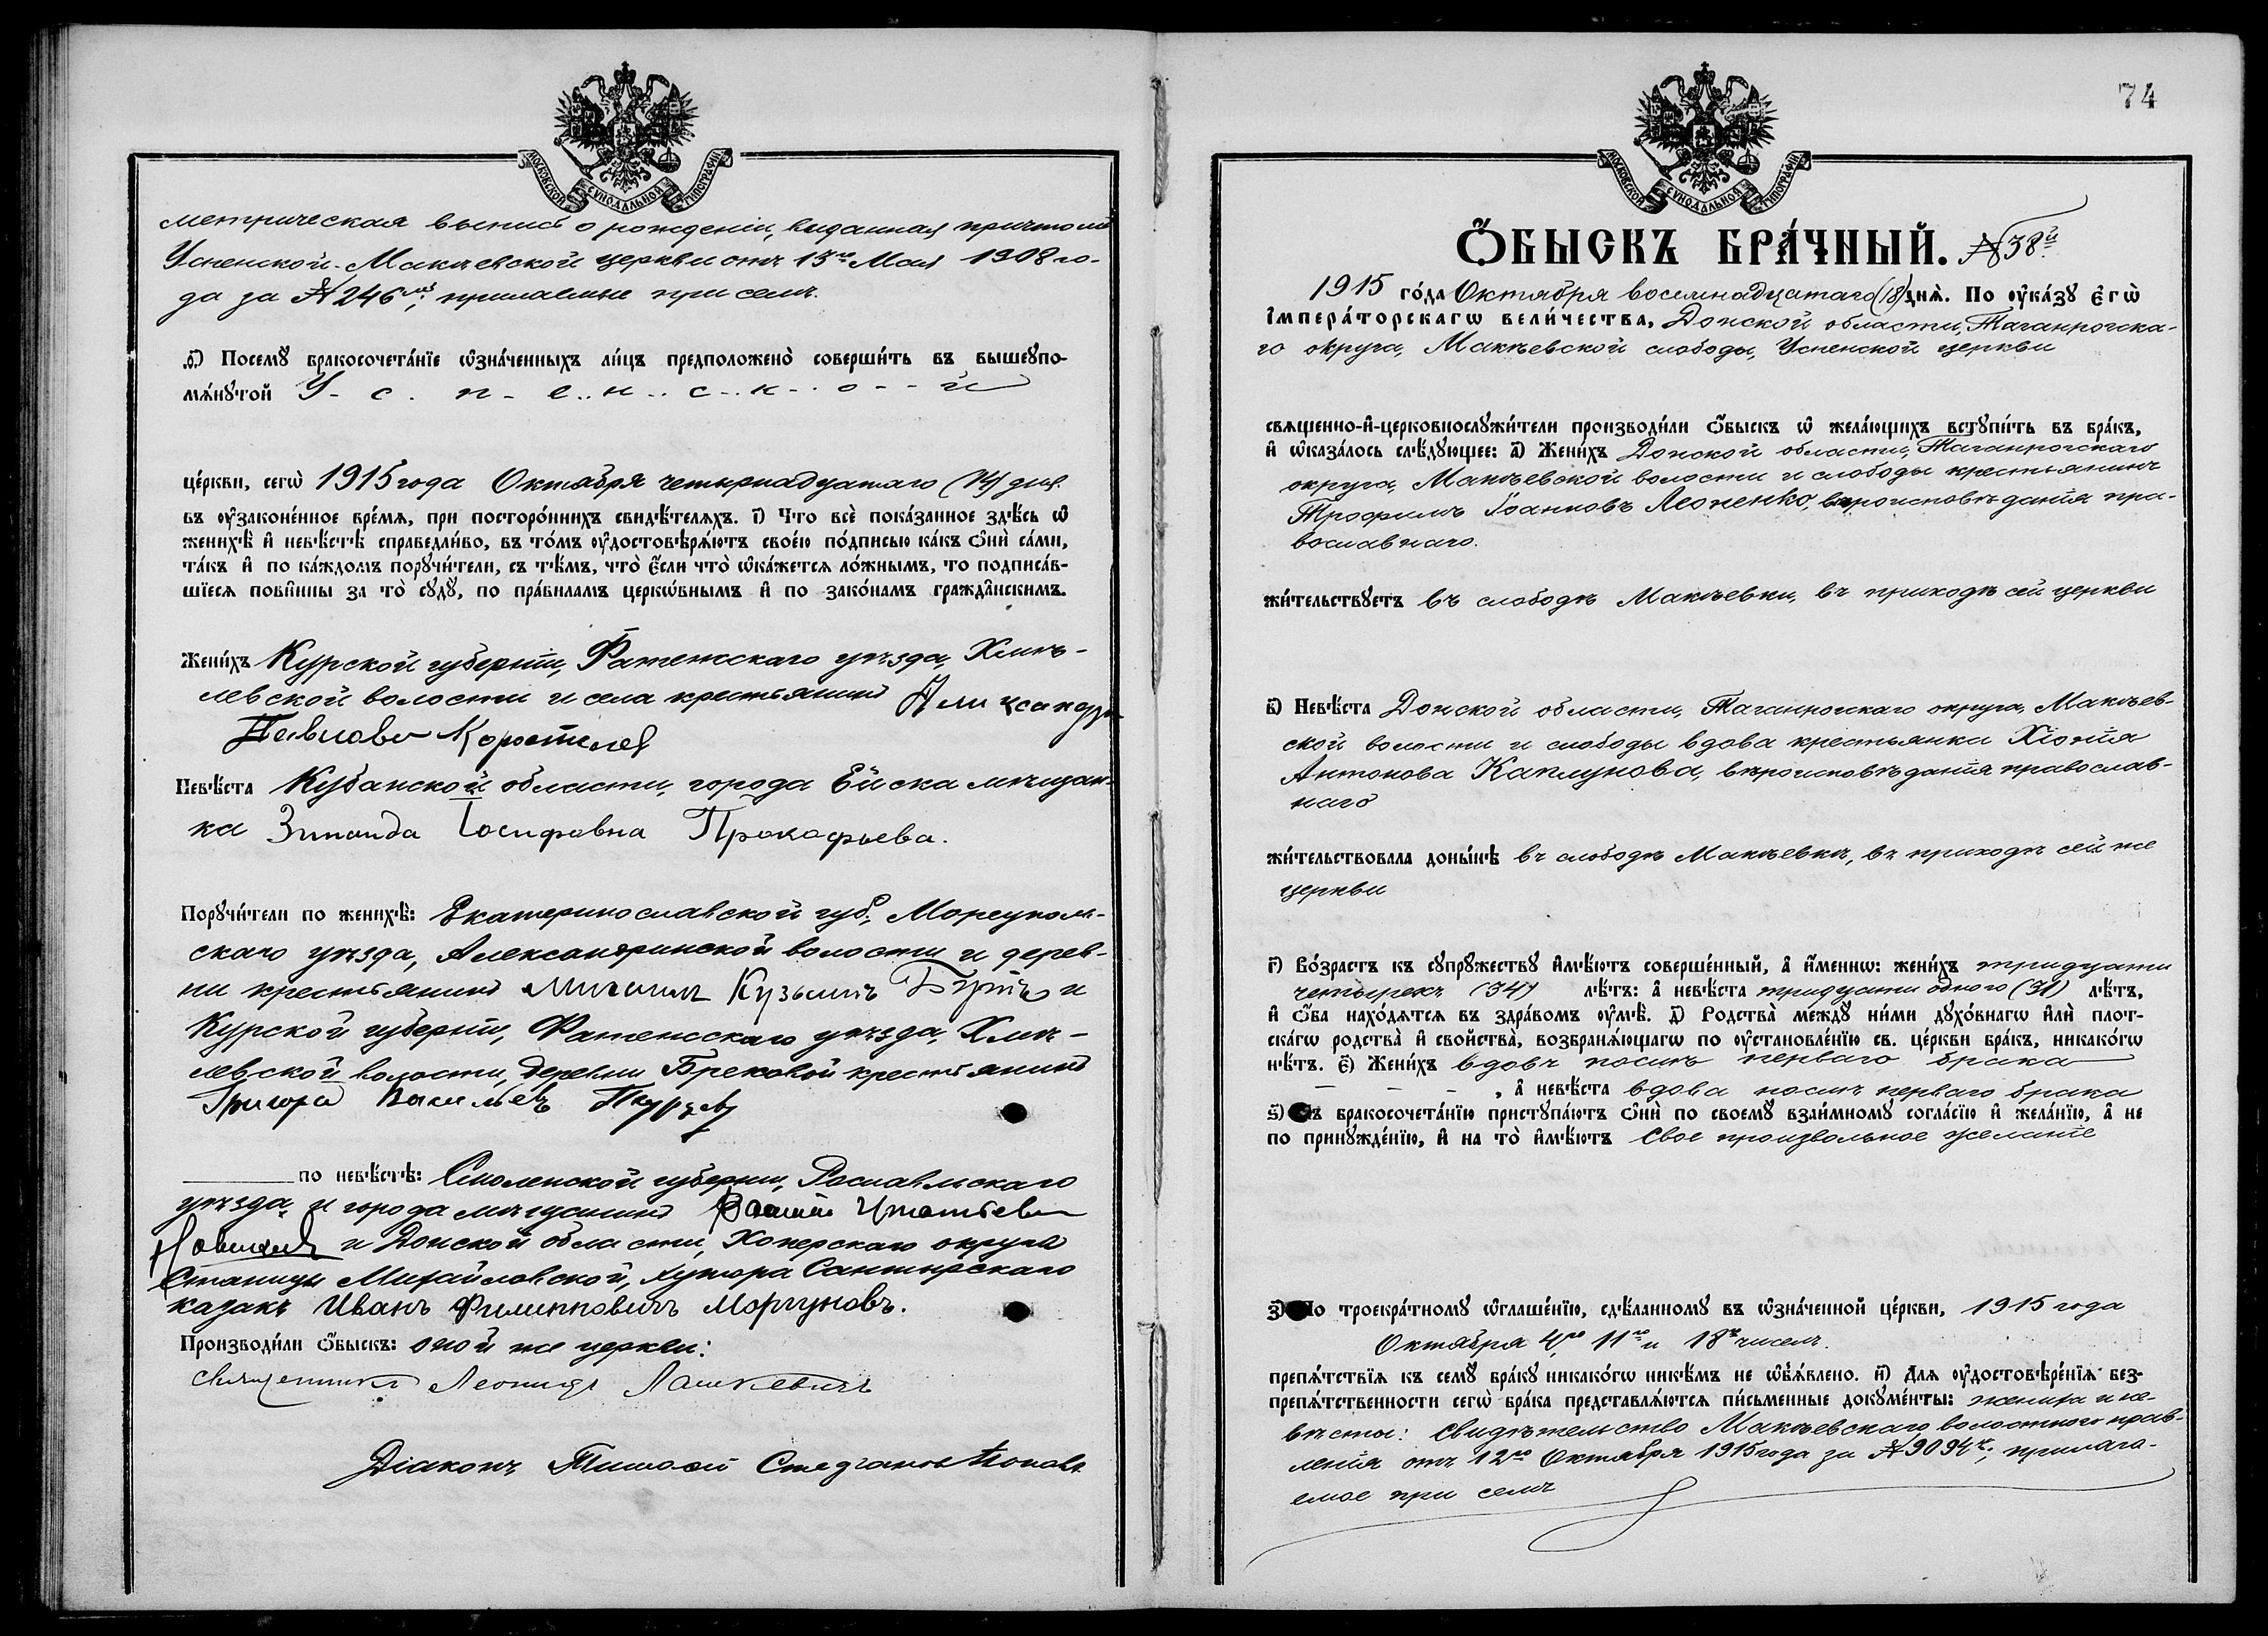 МОСКОВСКОЙ СѴНОДАЛЬНОЙ ТИПОГРАФІИ
метрическая выпись о рожденіи, выданная причтомъ
Успенской-Макѣевской церкви отъ 13го Мая 1908 го-
да за № 246мъ, прилаемые при семъ.
ѳ҃) Посемꙋ бракосочета́нїе ѡ҆зна́ченныхъ ли́цъ предположено̀ соверши́ть въ вышеупо-
мѧ́нꙋтой У- с. п- е.. н.. с-. к-. о-- й
це́ркви, сегѡ̀ 1915 года Октября четырнадцатаго (14) дня.
въ ᲂу҆зако́ненное вре́мѧ, при посторо́ннихъ свидѣ́телѧхъ. і҃) Что всѐ пока́занное здѣ́сь ѡ҆
женихѣ̀ и҆ невѣ́стѣ справедли́во, въ то́мъ ᲂу҆достовѣрѧ́ютъ свое́ю по́дписью ка́къ ѻ҆нѝ са́ми,
та́къ и҆ по ка́ждомъ порꙋчи́тели, съ тѣ́мъ, что̀ є҆́сли что̀ ѡ҆ка́жетсѧ ло́жнымъ, то подписа́в-
шїесѧ пови̂нны за то̀ сꙋдꙋ̀, по пра́виламъ церкѡ́внымъ и҆ по зако́намъ гражда̂нскимъ.
Жени́хъ Курской губерніи, Фатежскаго уѣзда, Хмѣ-
левской волости и села крестьянинъ Алиқсандръ
Павловъ Коростелев
Невѣ́ста Кубанской области, города Ейска мѣщан-
ка Зинаида Іосифовна Прокофьева.
Порꙋчи́тели по женихѣ̀: Екатеринославской губ., Маріуполь-
скаго уѣзда, Александринской волости и дерев-
ни крестьянинъ Михаилъ Кузьмичъ и
Курской губерніи, Фатежскаго уѣзда, Хмѣ-
левской волости, деревни Бреховой крестьянинъ
Григорій Васильевъ
по невѣ́стѣ: Смоленской губерніи, Рославльскаго
уѣзда и города мѣщанинъ Игнатьевъ
Новиковъ и Донской области, Хоперскаго округа
Станицы Михайловской, хутора Сантырскаго
казакъ Иванъ Филипповичъ Моргуновъ.
Производи́ли ѻ҆́быскъ: оной же церкви:
священникъ Леонидъ Лашкевичъ
Діаконъ Тимофей Стефановъ Поповъ
74
МОСКОВСКОЙ СѴНОДАЛЬНОЙ ТИПОГРАФІИ
Ѻ҆БЫСКЪ БРА́ЧНЫЙ. № 38й
1915 го́да Октября восемнадцатаго (18) днѧ̀. По ᲂу҆ка́зꙋ є҆гѡ̀
і҆мпера́торскагѡ вели́чества, Донской области, Таганрогска-
го округа, Макѣевской слободы, Успенской церкви
свѧщенно-и҆-церковнослꙋжи́тели производи́ли ѻ҆́быскъ ѡ҆ жела́ющихъ встꙋпи́ть въ бра́къ,
и҆ ѡ҆каза́лось слѣ́дꙋющее: а҃) Жени́хъ Донской области, Таганрогскаго
округа, Макѣевской волости и слободы крестьянинъ
Трофимъ Іоанновъ Леоненко, вѣроисповѣданія пра-
вославнаго.
жи́тельствꙋетъ въ слободѣ Макѣевки, въ приходѣ сей церкви
в҃) Невѣ́ста Донской области, Таганрогскаго округа, Макѣев-
ской волости и слободы вдова крестьянка Хіонія
Антонова Каплунова, вѣроисповѣданія православ-
наго
жи́тельствовала доны́нѣ въ слободѣ Макѣевкѣ, въ приходѣ сей же
церкви
г҃) Во́зрастъ къ сꙋпрꙋжествꙋ и҆мѣ́ютъ соверше́нный, а҆ и҆́меннѡ: жени́хъ тридцати
четырехъ (34) лѣ́тъ: а҆ невѣ́ста тридцати одного (31) лѣ́тъ,
и҆ ѻ҆́ба нахо́дѧтсѧ въ здра́вомъ ᲂу҆мѣ̀. д҃) Родства̀ междꙋ̀ ни́ми дꙋхо́внагѡ и҆лѝ плот-
ска́гѡ родства̀ и҆ свойства̀, возбранѧ́ющагѡ по ᲂу҆становле́нїю св. це́ркви бра́къ, никако́гѡ
нѣ́тъ. є҃) Жени́хъ вдовъ послѣ перваго брака
, а҆ невѣ́ста вдова послѣ перваго брака
ѕ҃) Къ бракосочета́нїю пристꙋпа́ютъ ѻ҆нѝ по своемꙋ̀ взаи́мномꙋ согла́сїю и҆ жела́нїю, а҆ не
по принꙋжде́нїю, и҆ на то̀ и҆мѣ́ютъ свое произвольное желаніе
з҃) По троекра́тномꙋ ѡ҆глаше́нїю, сдѣ́ланномꙋ въ ѡ҆зна́ченной це́ркви, 1915 года
Октября 4го, 11го и 18го чиселъ.
препѧ́тствїѧ къ семꙋ̀ бра́кꙋ никако́гѡ никѣ́мъ не ѡ҆б̾ѧ́влено. и҃) Для ᲂу҆достовѣре́нїѧ без-
препѧ́тственности сегѡ̀ бра́ка представлѧ́ютсѧ пи́сьменные докꙋме́нты: жениха и не-
вѣсты: Свидѣтельство Макѣевскаго волостного прав-
ленія отъ 12го Октября 1915 года за № 9094й, прилага-
емое при семъ